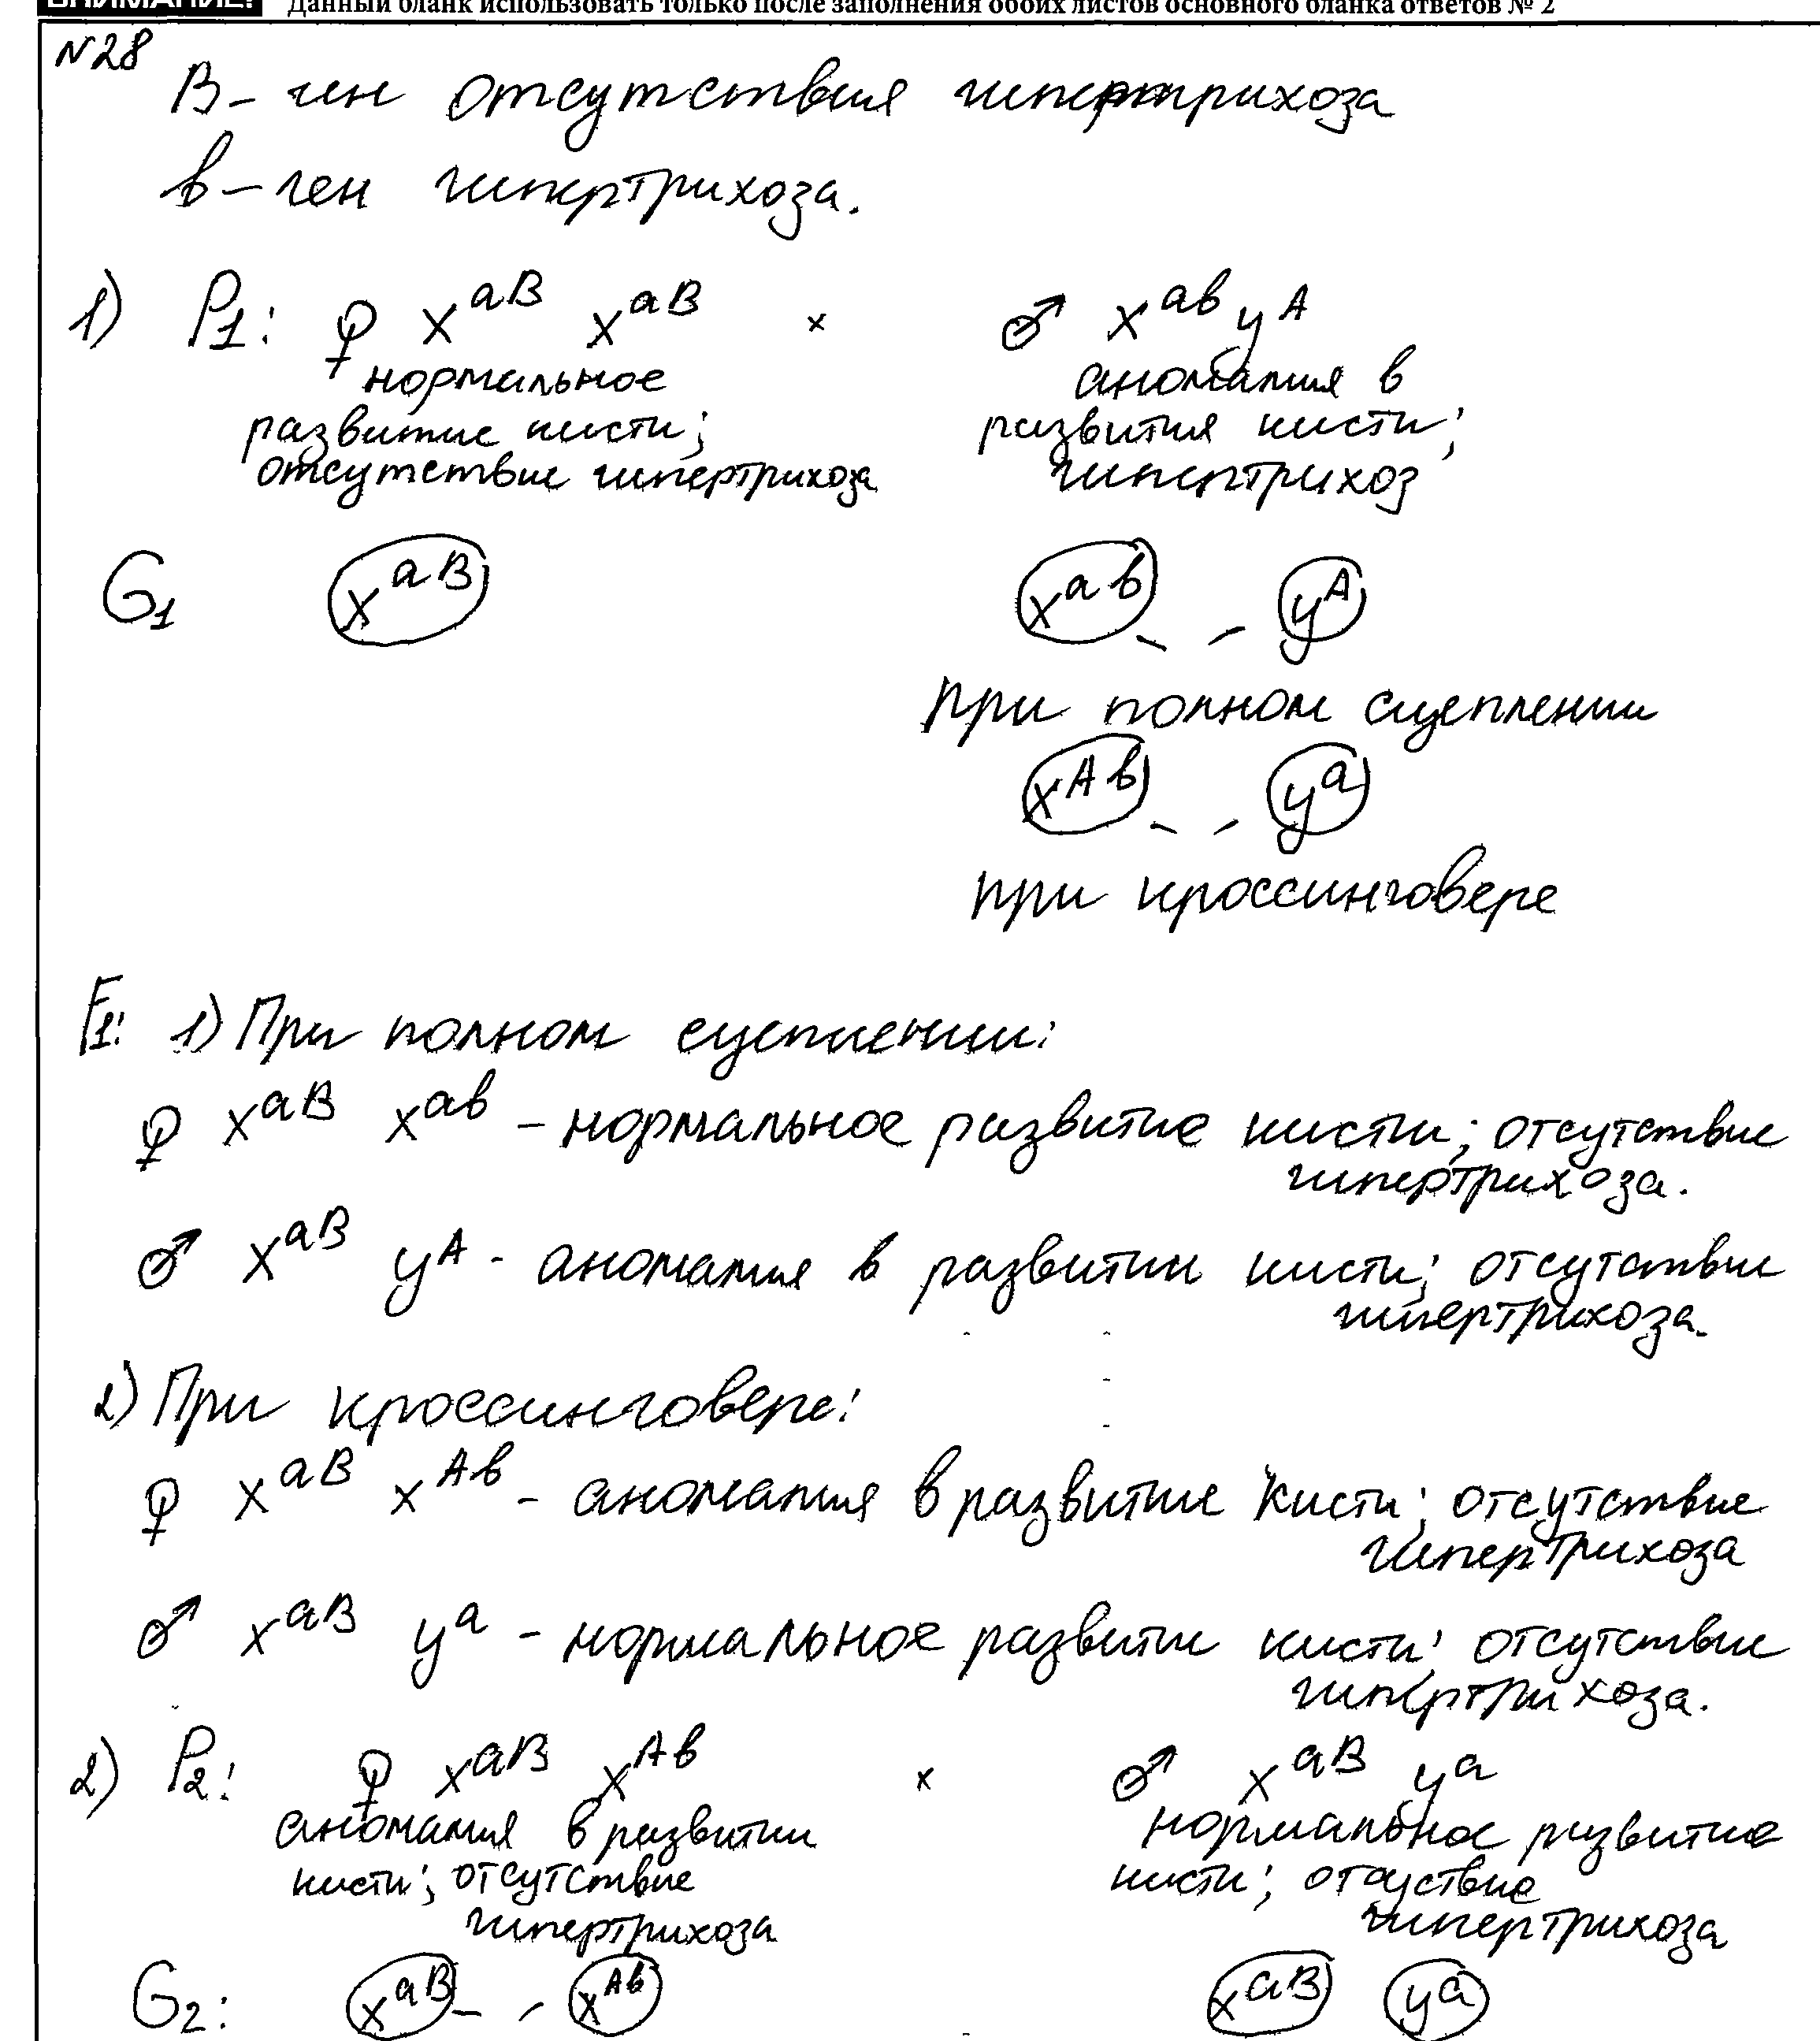 ВНИМАНИЕ! Данный бланк использовать только после заполнения обоих листов основного бланка ответов № 2
N28
B – ген отсутствия гипертрихоза
b – ген гипертрихоза.
1) P1: ♀ X^aB X^aB × ♂ X^ab y^A
нормальное развитие кисти; отсутствие гипертрихоза
аномалия в развития кисти; гипертрихоз
G1 X^aB X^ab y^A
при полном сцеплении
X^Ab y^a
при кроссинговере
F1: 1) При полном сцеплении:
♀ X^aB X^ab – нормальное развитие кисти; отсутствие
гипертрихоза.
♂ X^aB y^A - аномалия в развитии кисти; отсутствие
гипертрихоза.
2) При кроссинговере:
♀ X^aB X^Ab – аномалия в развитие кисти; отсутствие
гипертрихоза
♂ X^aB y^a – нормальное развити кисти; отсутствие
гипертрихоза.
2) P2: ♀ X^aB X^Ab × ♂ X^aB y^a
аномалия в развитии кисти; отсутствие гипертрихоза
нормальное развитие кисти; отсуствие гипертрихоза
G2: X^aB X^Ab X^aB y^a